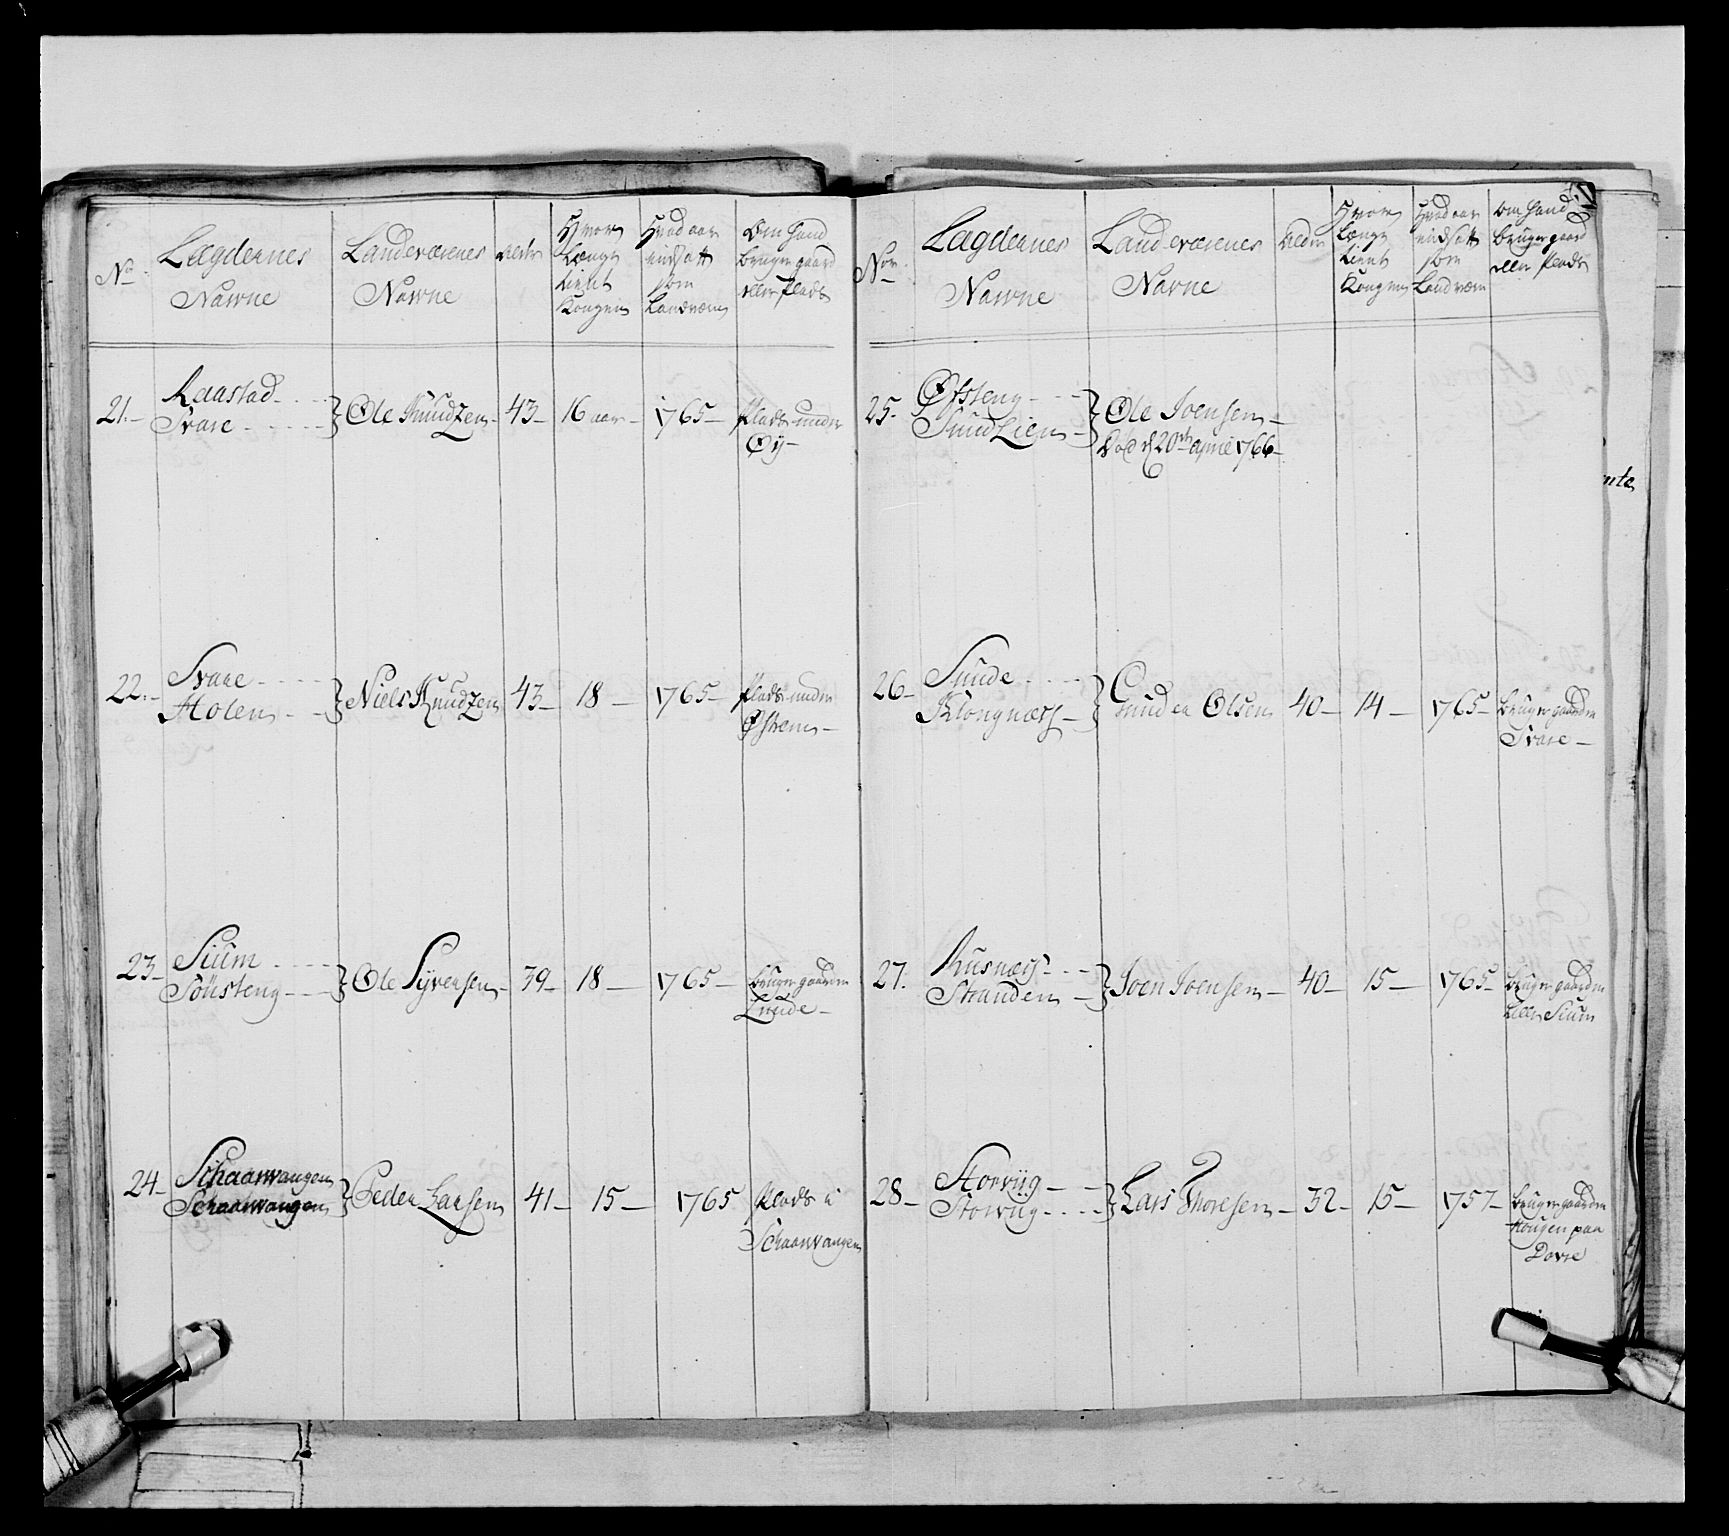 No
Lægdernes
Nawne
Landeværnes
Nawne
Alder
Hvor
Længe
tient
Kongen
Hvad aar
indsatt
som
Landværn
Om hand
bruger gaard
eller Plads
21.- Raastad - - -
Svare - - - - } Ole Knudzen - 43- 16 aar- 1765- Plads under
Øy-
22.- Svare - - - -
Holen - - } Niels Knudzen 43- 18 - 1765- Plads under
Østrem-
23- Siüm - - - -
Sønsteng - - - } Ole Syversen - 39- 18 - 1765- bruger gaarden
Lunde-
24- Schaarvangen
Schaarvangen } Peder Larsen 41- 15- 1765 Plads u
Schaarvangen
Nor
Lægdernes
Nawne
Landeværnes
Navne
Alder
Hvor
Længe
tient
Kongen
Hvad aar
indsatt
som
Landværn
Om hand
bruger gaard
eller Plads
25- Øfsteng - - -
Sundlien - } Ole Joensen -
Død d 20de april 1766-
26- Sunde - - - -
Klongnæss - } Gunder Olsen 40- 14- 1765- bruger gaarden
Svare-
27. Rusnæss - - -
Stranden - } Joen Joensen - 40- 15- 1765- bruger gaarden
Siüm
28- Storviig - -
Storviig - - - } Lars Thoresen - 32- 15- 1757- bruger gaarden
Hougen paa
Dovre